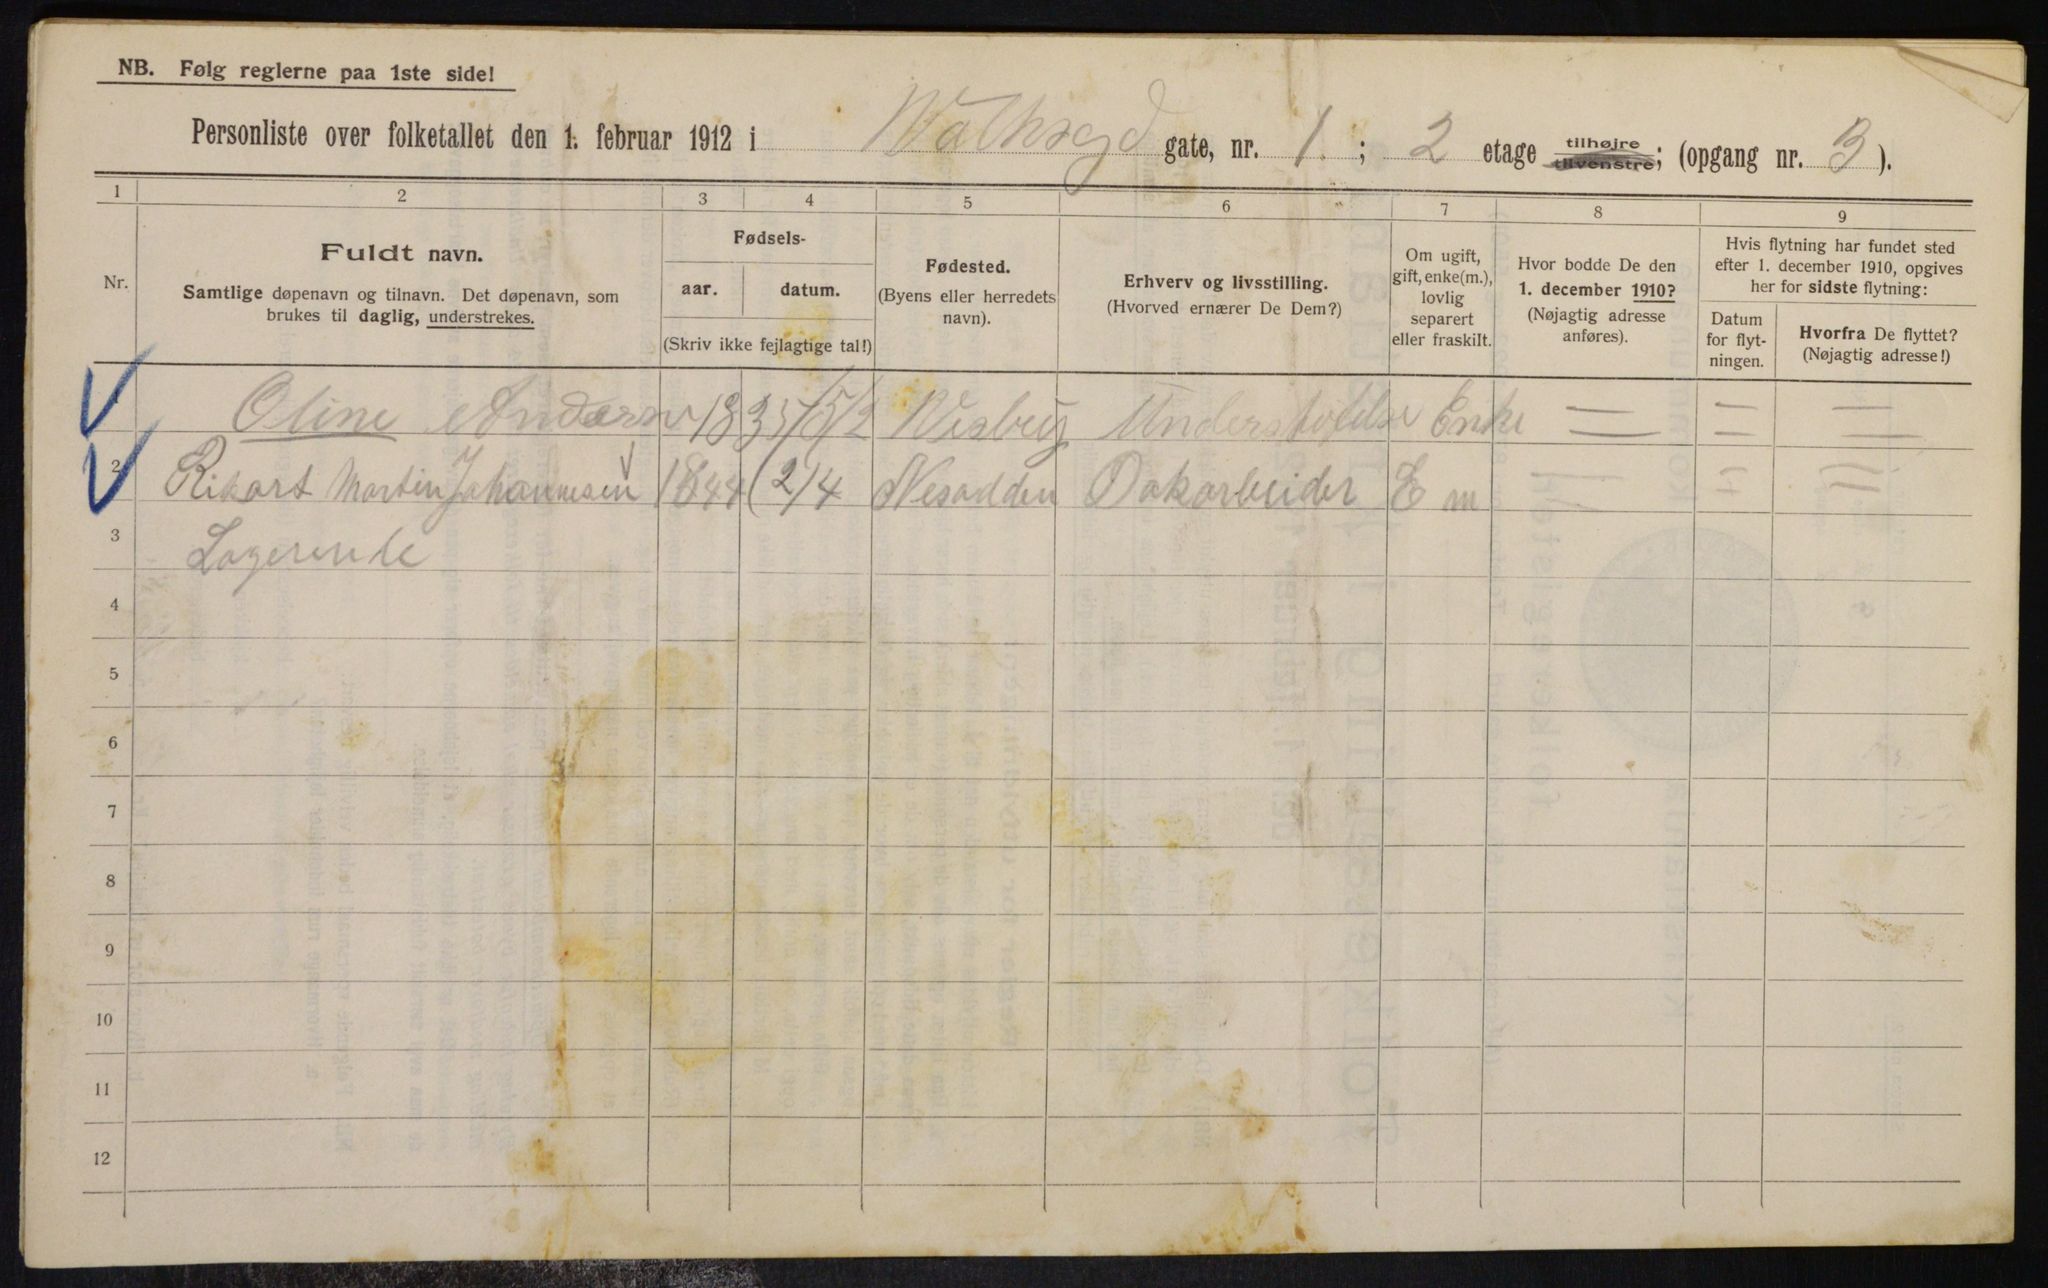 NB. Følg reglerne paa 1ste side!
Personliste over folketallet den 1. februar 1912 i gate, nr. 1 ; 2 etage tilhøjre tilvenstre; (opgang nr. 3 ).
1 2 3 4 5 6 7 8 9
Nr.
Fuldt navn.
Samtlige døpenavn og tilnavn. Det døpenavn, som
brukes til daglig, understrekes.
Fødsels-
aar. datum.
(Skriv ikke fejlagtige tal!)
Fødested.
(Byens eller herredets
navn).
Erhverv og livsstilling.
(Hvorved ernærer De Dem?)
Om ugift,
gift, enke(m.),
lovlig
separert
eller fraskilt.
Hvor bodde De den
1. december 1910?
(Nøjagtig adresse
anføres).
Hvis flytning har fundet sted
efter 1. december 1910, opgives
her for sidste flytning:
Datum
for flyt-
ningen.
Hvorfra De flyttet?
(Nøjagtig adresse!)
Oline Andersen 1835 5/2 Understøttelse Enke
2 Rikart Martin Johannesen 1844 2/4 Nesodden Dokarbeider E m
3 Logerende
4
5
6
7
8
9
10
11
12